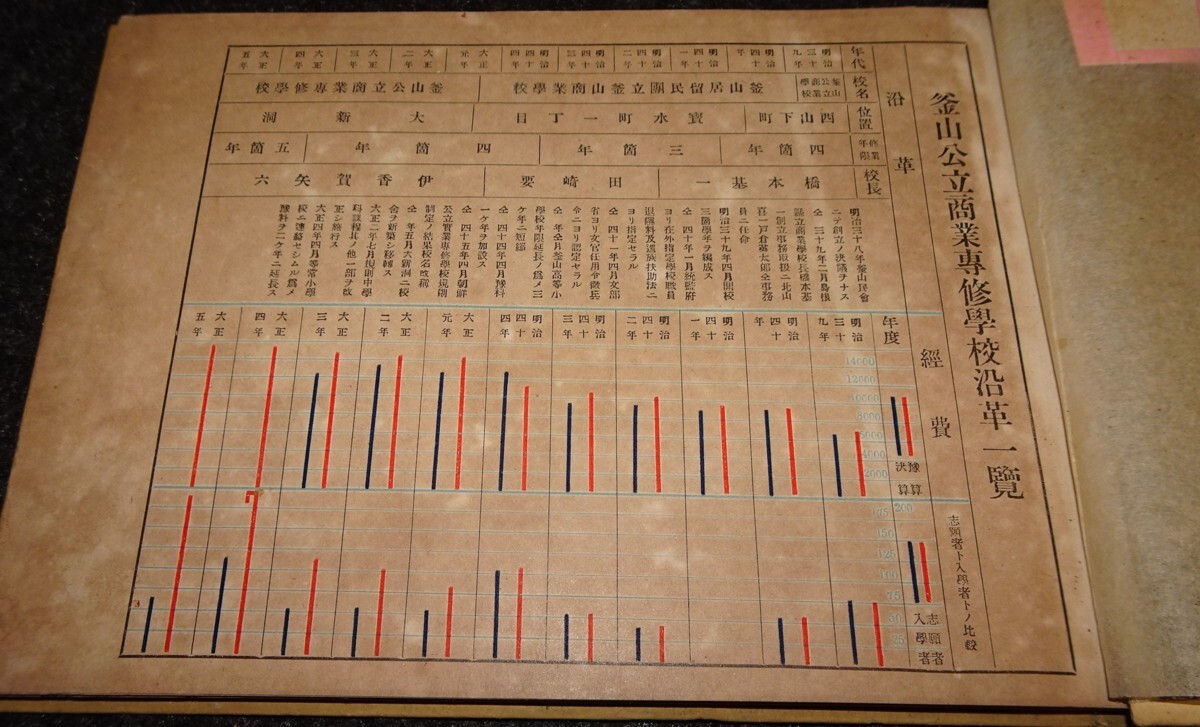 釜山公立商業專修學校沿革一覽
沿革
年代
明治三十九年
明治四十年
明治四十一年
明治四十二年
明治四十三年
明治四十四年
大正元年
大正二年
大正三年
大正四年
大正五年
校名
釜山公立商業學校
釜山居留民團立釜山商業學校
釜山公立商業專修學校
位置
西山下町
寶水町一丁目
大新洞
修業年限
四箇年
三箇年
四箇年
五箇年
校長
橋本基一
田崎要
伊香賀矢六
明治三十八年釜山民會
ニテ創立ノ決議ヲナス
仝 三十九年二月島根
縣立商業學校長橋本基
一創立事務取扱ニ北山
喜一戸倉英太郎仝事務
員ニ任命
明治三十九年四月開校
三個學年ヲ編成ス
仝 四十年一月統監府
ヨリ在外指定學校職員
退隱料及遺族扶助法ニ
ヨリ指定セラル
仝 四十一年四月文部
省ヨリ文官任用令徵兵
令ニヨリ認定セラル
仝 年仝月釜山高等小
學校年限延長ノ爲メ三
ケ年ニ短縮
仝 四十四年四月豫科
一ケ年ヲ加設ス
仝 四十五年四月朝鮮
公立實業專修學校規則
制定ノ結果校名改稱
仝 年五月大新洞ニ校
舍ヲ新築シ移轉ス
大正二年七月規則中學
科課程其ノ他一部ヲ改
正シ施行ス
大正四年四月尋常小學
校ニ連絡セシムル爲メ
豫科ヲ二ケ年ニ延長ス
經費
年度
明治三十九年
明治四十年
明治四十一年
明治四十二年
明治四十三年
明治四十四年
大正元年
大正二年
大正三年
大正四年
大正五年
14000
12000
10000
8000
6000
4000
2000
豫算
決算
志願者ト入學者トノ比較
200
175
150
125
100
75
50
25
志願者
入學者